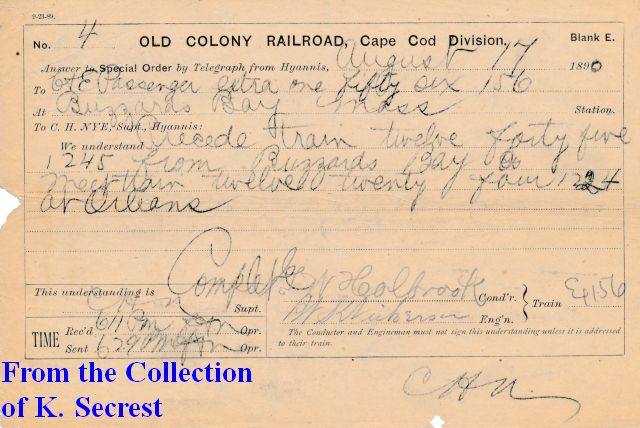 9-23-89.
No. 4 OLD COLONY RAILROAD, Cape Cod Division, Blank E.
Answer to Special Order by Telegraph from Hyannis, August 17 1890
To C & E Passenger extra one fifty six 156
At Buzzards Bay Mass Station.
To C. H. NYE, Supt., Hyannis:
We understand Precede train twelve forty five
1245 from Buzzards Bay &
Meet train twelve twenty four 1224
at Orleans
This understanding is Complete
C H N Supt. Holbrook Cond'r. Train E 156
TIME Rec'd 613 Opr. W. Nickerson Eng'n.
Sent 629 Opr.
The Conductor and Engineman must not sign this understanding unless it is addressed to their train.
C H N
From the Collection
of K. Secrest